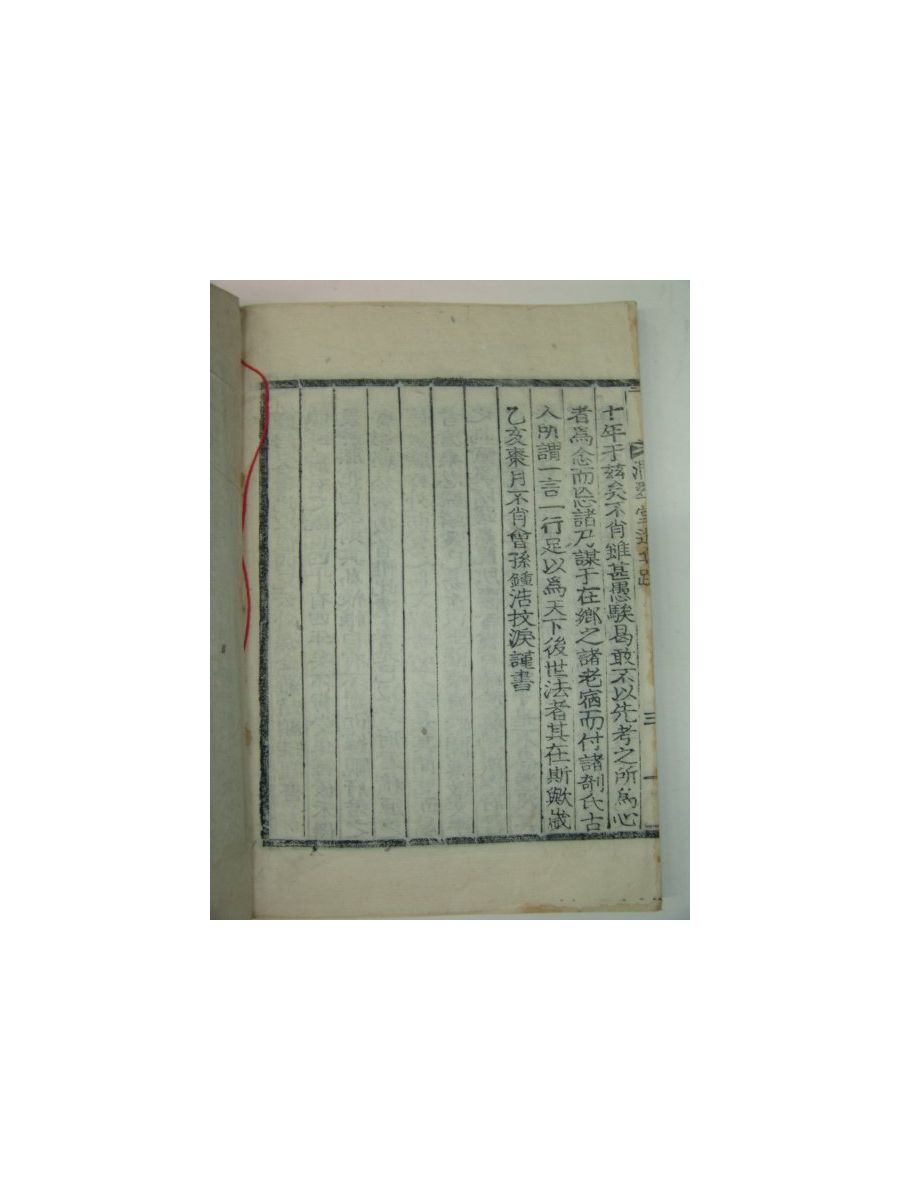 十年于玆矣不肖雖甚愚騃曷敢不以先考之所爲心
者爲念而忽諸乃謀于在鄕之諸老宿而付諸剞氏古
人所謂一言一行足以爲天下後世法者其在斯歟歲
乙亥棗月不肖曾孫鍾浩抆淚謹書
堂
三